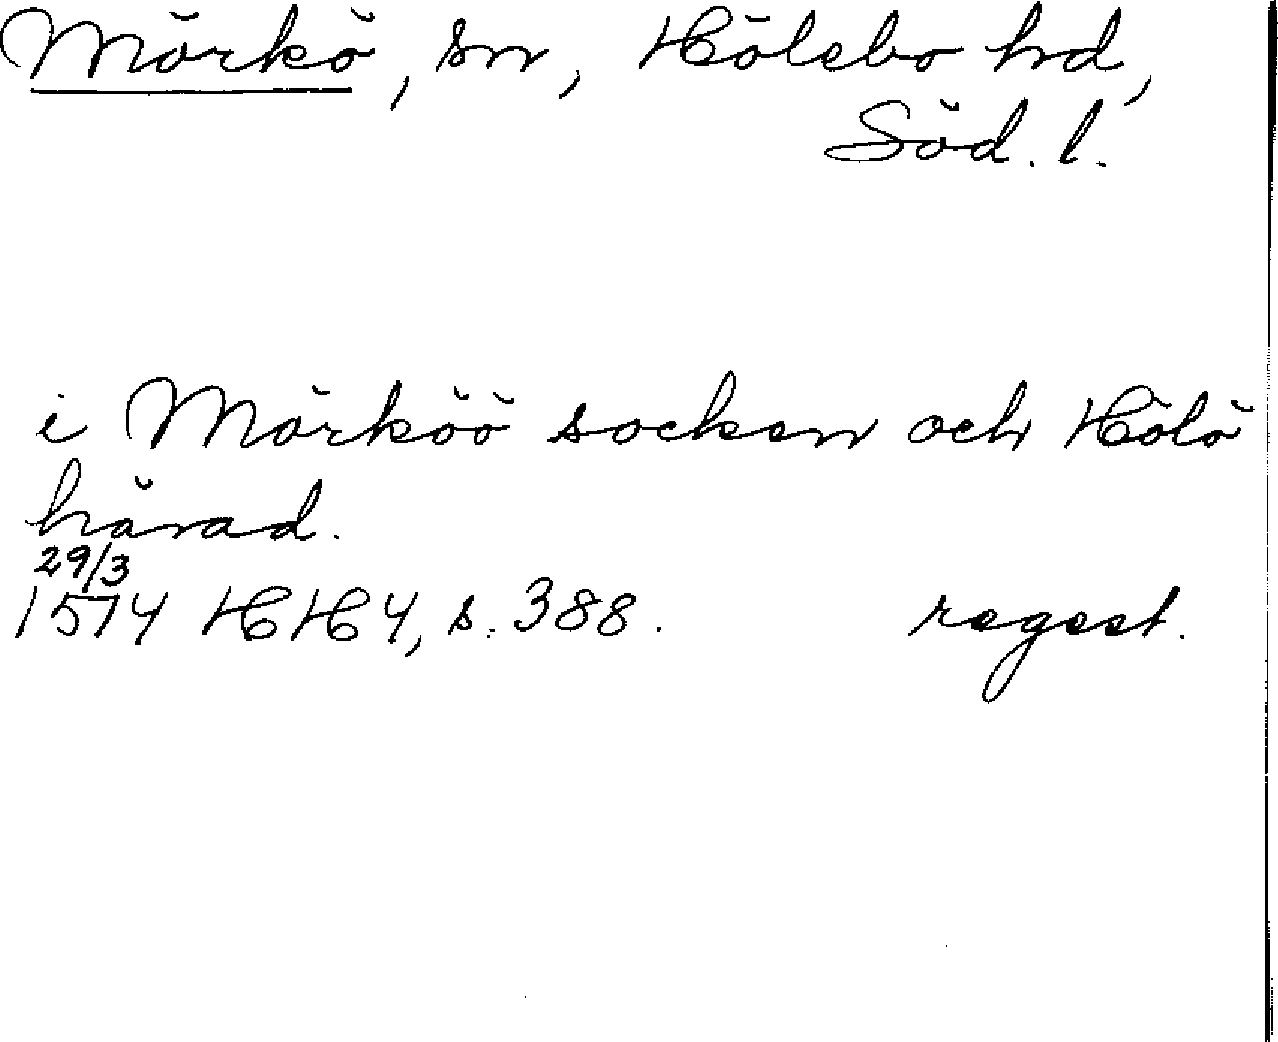 Mörkö, sn, Hölebo hd,
Söd. l.
i Mörköö socken och Hölö
härad.
29/3
1574 HH 4, s. 388. regest.